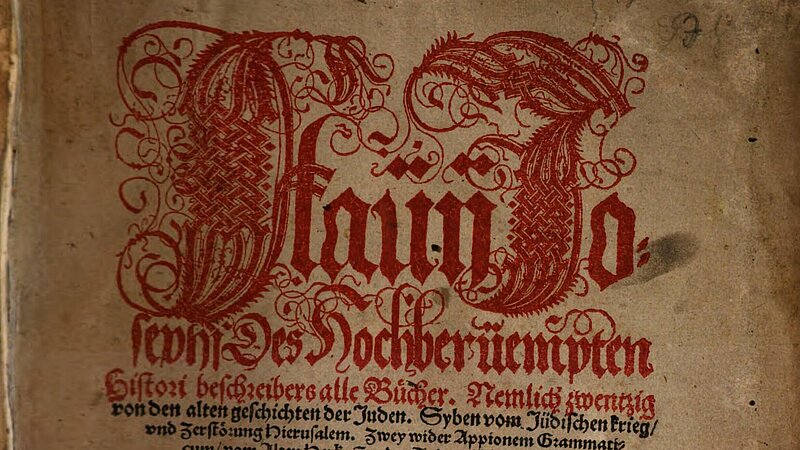 Flauij Jo=
sephi Des Hochberüempten
Histori beschreibers alle Bücher. Nemlich zwentzig
von den alten geschichten der Juden. Syben vom Jüdischen krieg/
vnd Zerstörung Hierusalem. Zwey wider Appionem Grammati=
cum/